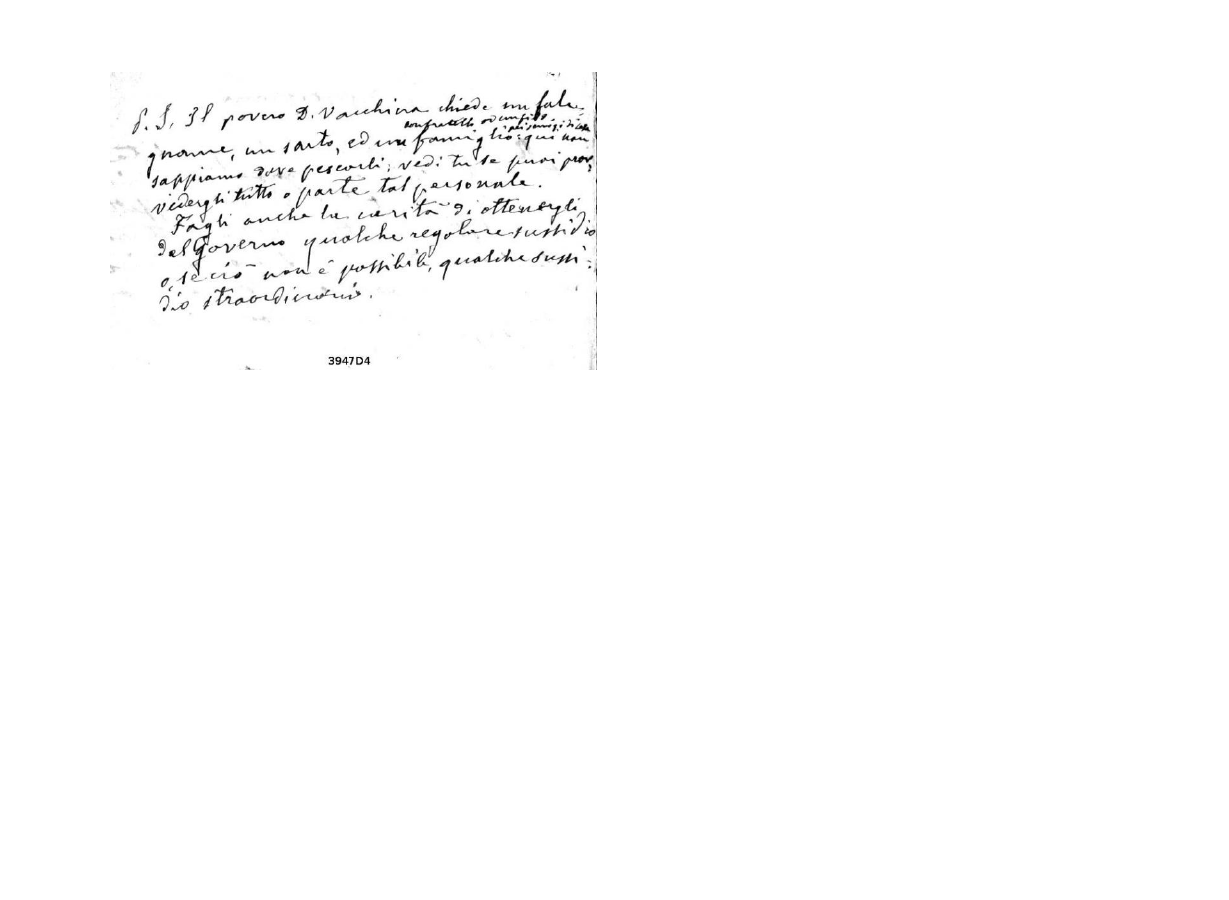 P. S. Il povero D. Vacchina chiede un fale-
gname, un sarto, ed un famiglio: qui non
confratelli od anche
sappiamo dove pescarli; vedi tu se puoi prov,
vedergli tutto o parte tal personale.
Fagli anche la carità di ottenergli
dal Governo qualche regolare sussidio
o, se ciò non è possibile, qualche sussi:
dio straordinario.
3947D4